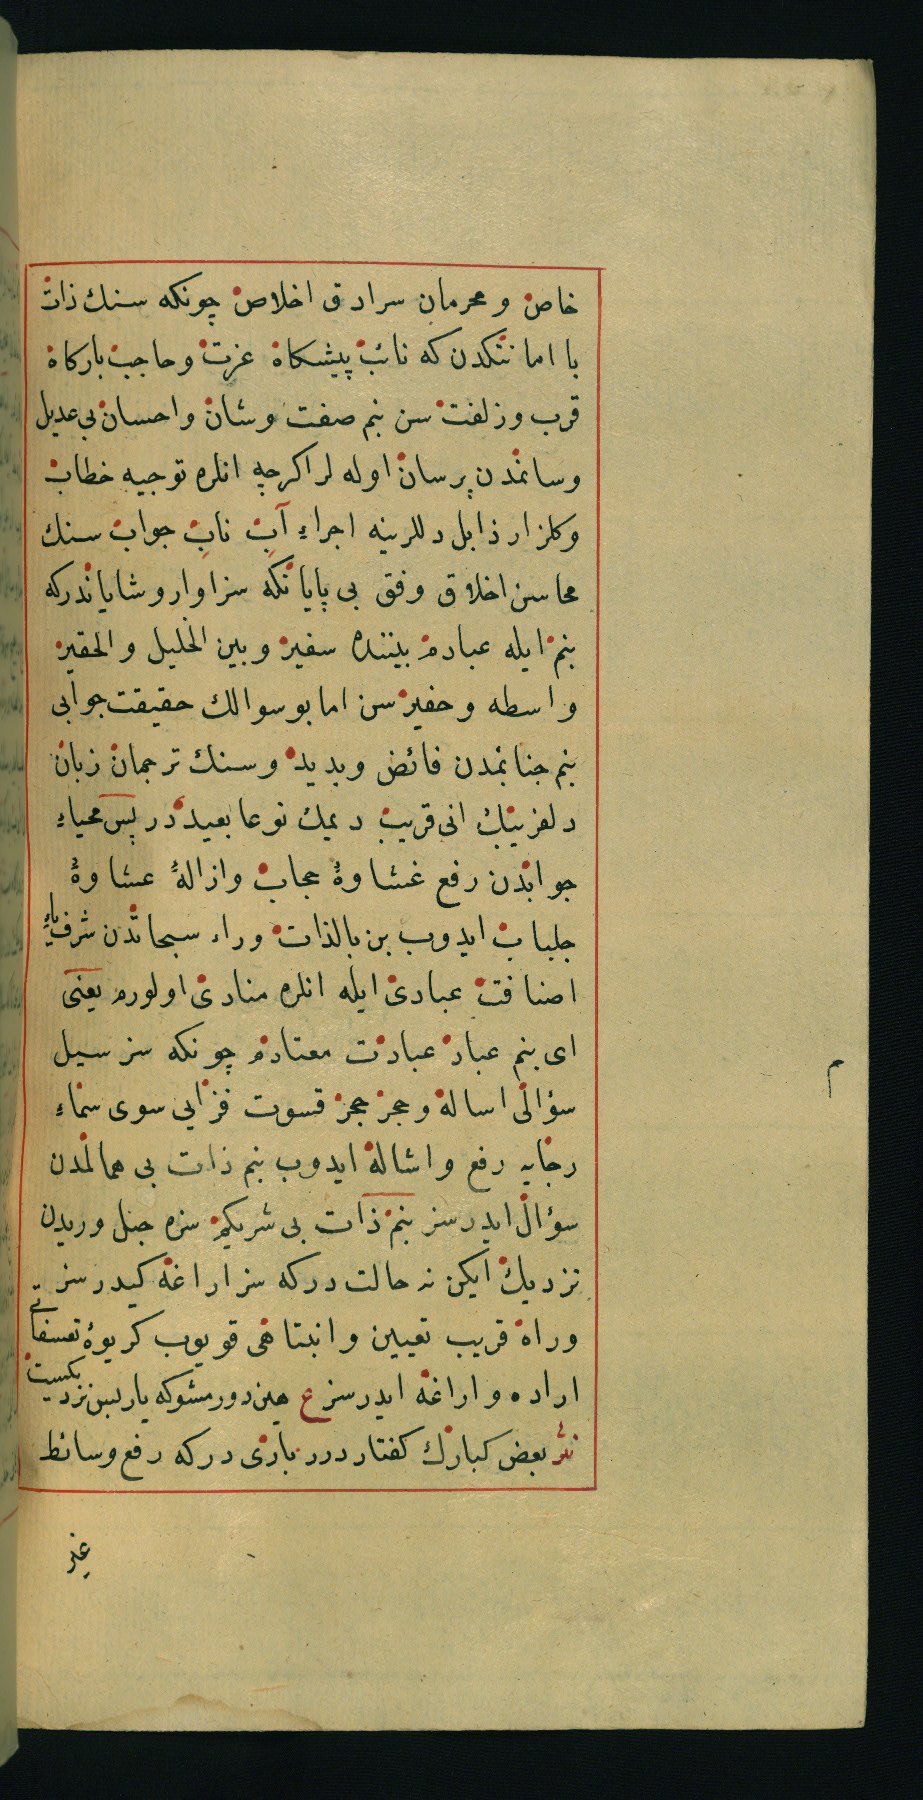 خاص و محرمان سرادق اخلاص چونكه سنك ذات
با امانتكدن كه نائب پيشكاه عزت و حاجب باركاه
قرب و زلفت سن بنم صفت و شان و احسان بى عديل
و سانمدن پرسان اوله لر اكرچه انلره توجيه خطاب
و كلزار ذابل دللرينه اجراء آب ناب جواب سنك
محاسن اخلاق وفق بى پايانكه سزاوار و شاياندركه
بنم ايله عبادم بيننده سفير و بين الخليل و الحقير
واسطه و خفير سن اما بو سوالك حقيقت جوابى
بنم جنابمدن فائض و بديد و سنك ترجمان زبان
دلفريبك انى قريب ديمك نوعا بعيددر پس محياء
جوابدن رفع غشاوهٔ حجاب و ازالهٔ عشاوهٔ
جلباب ايدوب بن بالذات وراء سبحاتدن شرف ياءِ
اضافت عبادى ايله انلره منادى اولورم يعنى
اى بنم عباد عبادت معتادم چونكه سز سيل
سؤالى اساله و حجز حجز قسوت فزايى سوى سماء
رجايه رفع و اشاله ايدوب بنم ذات بى همالمدن
سؤال ايدرسز بنم ذات بى شريكم سزه حبل وريدن
نزديك ايكن نه حالت دركه سز اراغه كيدرسز
و راه قريب تعيين و انبتاهى قويوب كريوهٔ تعسفاتى
اراده و اراغه ايدرسز ع هين دور مشوكه يار بس نزديكست
نثر بعض كبارك كفتار درر بارى دركه رفع وسائط
غير
م